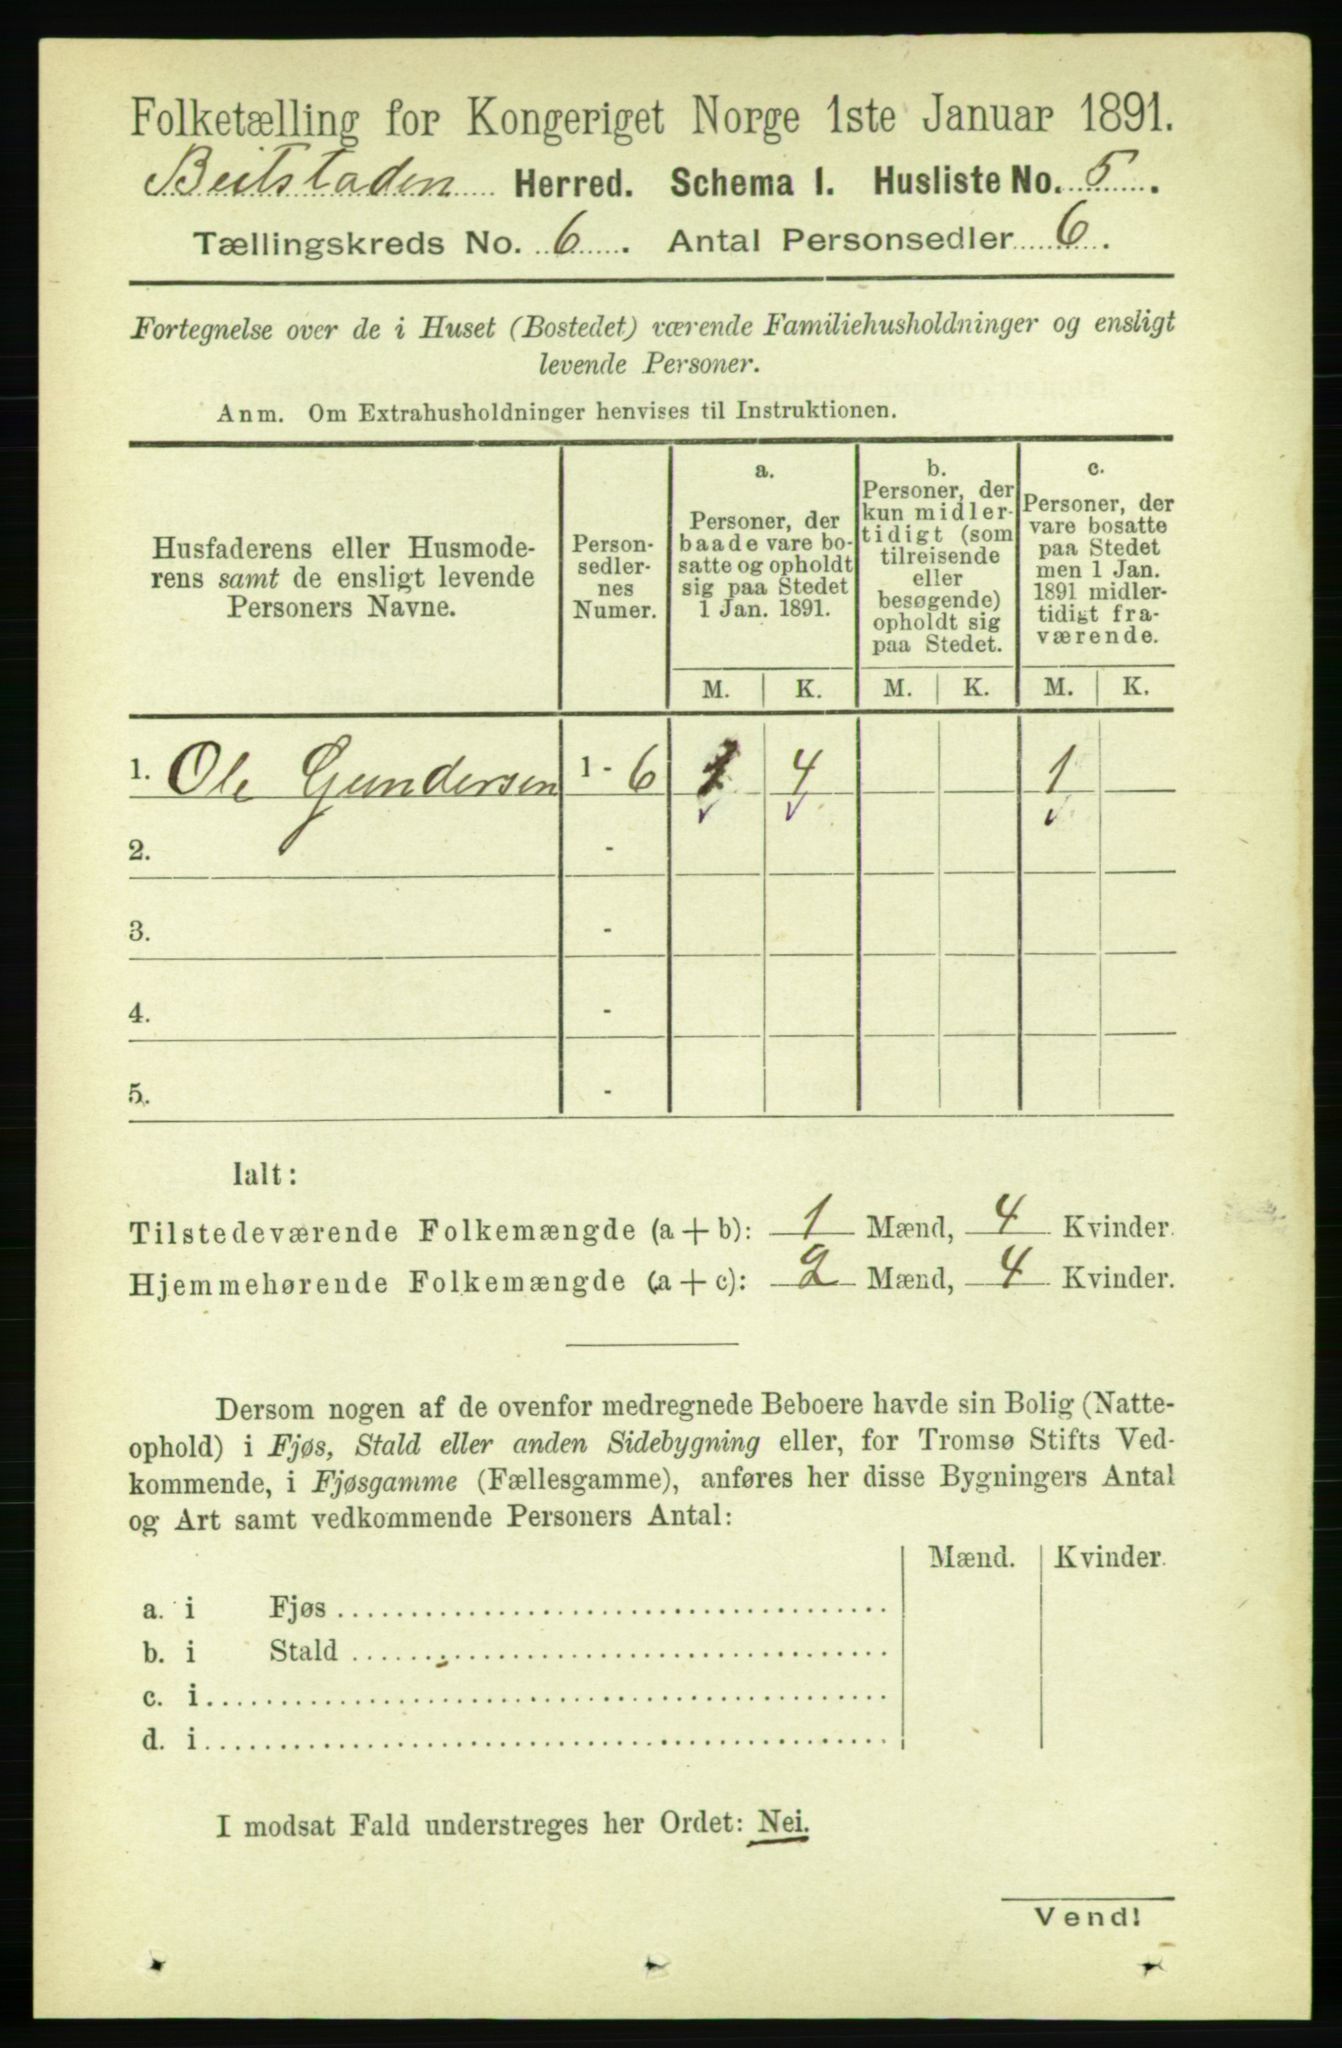 Folketælling for Kongeriget Norge 1ste Januar 1891.
Beitstaden Herred. Schema 1. Husliste No. 5.
Tællingskreds No. 6. Antal Personsedler 6.
Fortegnelse over de i Huset (Bostedet) værende Familiehusholdninger og ensligt
levende Personer.
Anm. Om Extrahusholdninger henvises til Instruktionen.
Husfaderens eller Husmode-
rens samt de ensligt levende
Personers Navne.
Person-
sedler-
nes
Numer.
a.
Personer, der
baade vare bo-
satte og opholdt
sig paa Stedet
1 Jan. 1891.
b.
Personer, der
kun midler-
tidigt (som
tilreisende
eller
besøgende)
opholdt sig
paa Stedet.
c.
Personer, der
vare bosatte
paa Stedet
men 1 Jan.
1891 midler-
tidigt fra-
værende.
M. K. M. K. M. K.
1. Ole Gundersen 1 - 6 1 4 1
2. -
3. -
4. -
5. -
Ialt:
Tilstedeværende Folkemængde (a + b): 1 Mænd, 4 Kvinder.
Hjemmehørende Folkemængde (a + c): 2 Mænd, 4 Kvinder.
Dersom nogen af de ovenfor medregnede Beboere havde sin Bolig (Natte-
ophold) i Fjøs, Stald eller anden Sidebygning eller, for Tromsø Stifts Ved-
kommende, i Fjøsgamme (Fællesgamme), anføres her disse Bygningers Antal
og Art samt vedkommende Personers Antal:
Mænd. Kvinder.
a. i Fjøs
b. i Stald
c. i
d. i
I modsat Fald understreges her Ordet: Nei.
Vend!